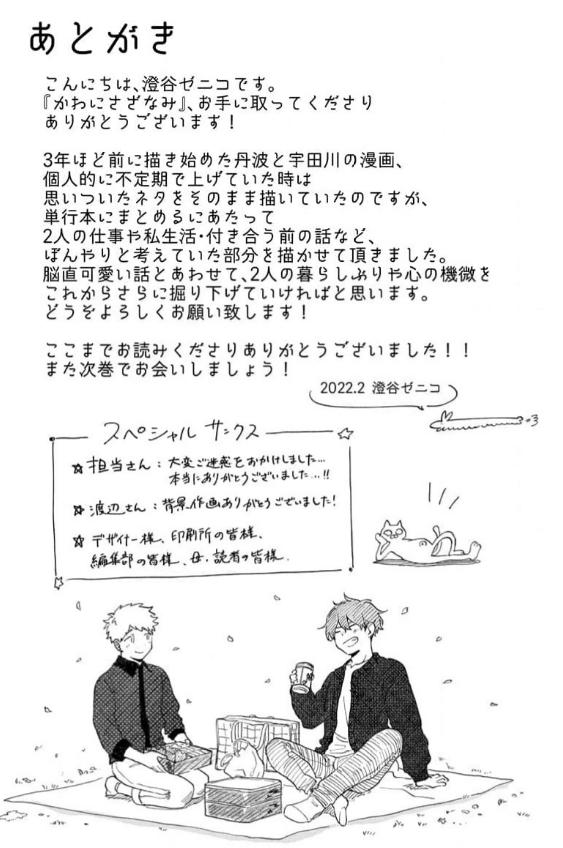 あとがき
こんにちは、澄谷ゼニコです。
『かわにさざなみ』、お手に取ってくださり
ありがとうございます！
3年ほど前に描き始めた丹波と宇田川の漫画、
個人的に不定期で上げていた時は
思いついたネタをそのまま描いていたのですが、
単行本にまとめるにあたって
2人の仕事や私生活・付き合う前の話など、
ぼんやりと考えていた部分を描かせて頂きました。
脳直可愛い話とあわせて、2人の暮らしぶりや心の機微を
これからさらに掘り下げていければと思います。
どうぞよろしくお願い致します！
ここまでお読みくださりありがとうございました！！
また次巻でお会いしましょう！
2022.2 澄谷ゼニコ
スペシャル サンクス
☆担当さん：大変ご迷惑をおかけしました…
本当にありがとうございました…!!
☆渡辺さん：背景作画ありがとうございました!
☆デザイナー様、印刷所の皆様、
編集部の皆様、母、読者の皆様.